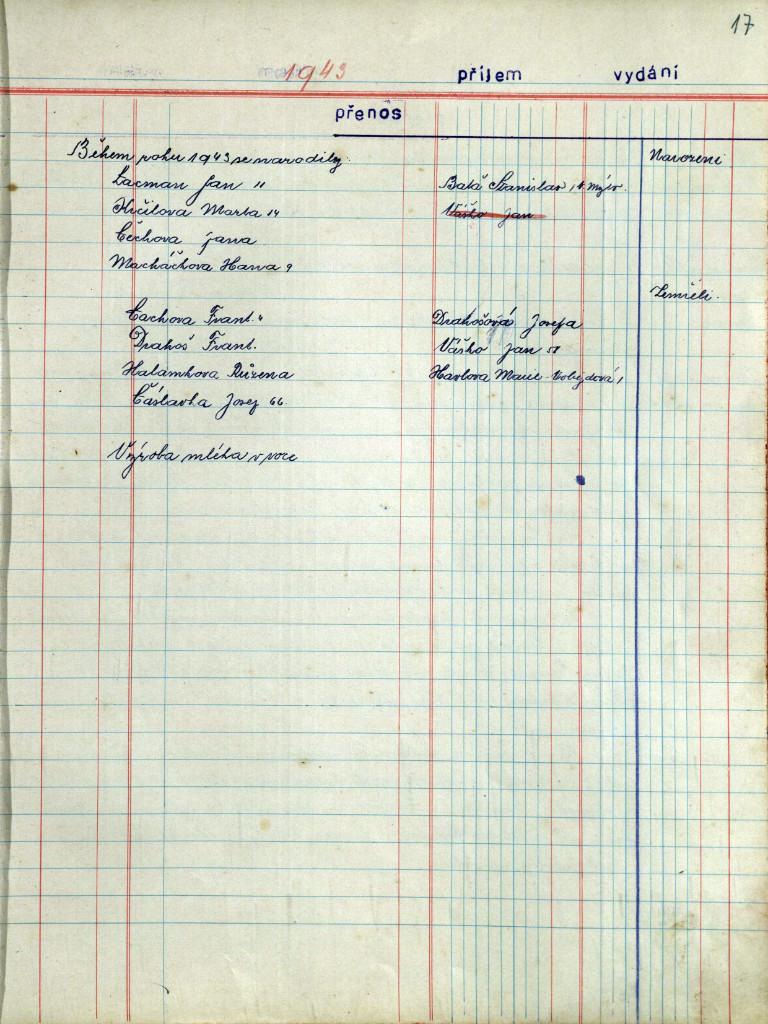 17
1943 příjem vydání
přenos
Během roku 1943 se narodily: Narození
Lacman Jan 11 Balš Stanislav, mlýn.
Krčilova Marta 14 Vaško Jan
Čechova Jana
Macháčkova Hana 9
Zemřeli.
Čachova Frant. 4 Drahošová Josefa
Drahoš Frant. Vaško Jan 51
Halamkova Růžena Havlova Marie
Čáslavka Josef 66
Výroba mléka v roce